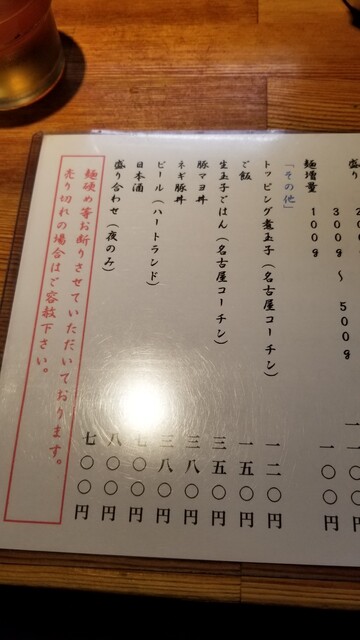 盛り
３００ｇ ～ ５００ｇ
麺増量 １００ｇ 一〇〇円
「その他」
トッピング煮玉子（名古屋コーチン） 一二〇円
ご飯 一五〇円
生玉子ごはん（名古屋コーチン） 三五〇円
豚マヨ丼 三八〇円
ネギ豚丼 三八〇円
ビール（ハートランド） 七〇〇円
日本酒 八〇〇円
盛り合わせ（夜のみ） 七〇〇円
麺硬め等お断りさせていただいております。
売り切れの場合はご容赦下さい。